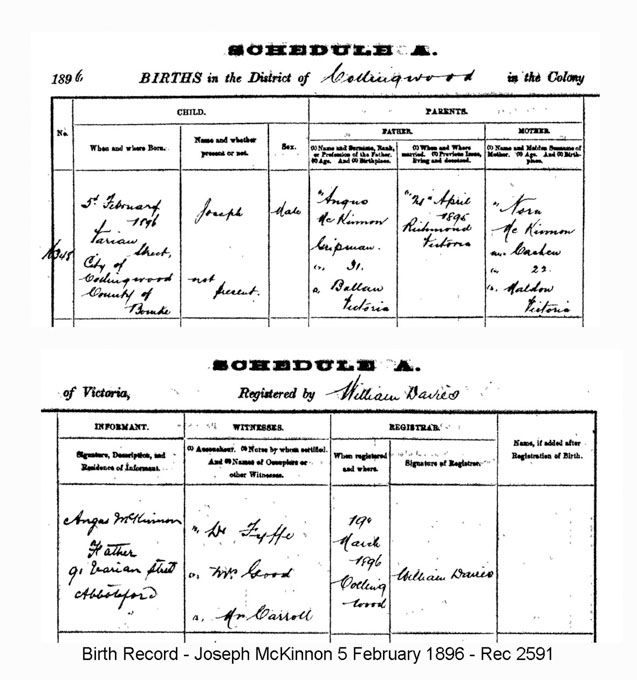 SCHEDULE A.
1896 BIRTHS in the District of Collingwood in the Colony
CHILD. PARENTS.
No. FATHER. MOTHER.
When and where Born. Name and whether present or not. Sex. (1) Name and Surname, Rank, or Profession of the Father. (2) Age. And (3) Birthplace. (1) When and Where married. (2) Previous Issue, living and deceased. (1) Name and Maiden Surname of Mother. (2) Age. And (3) Birthplace.
5th February
1896
Street,
City of
Collingwood
County of
Bourke
Joseph
not
present.
Male
Angus
McKinnon
Gripman.
31.
Ballan
Victoria
April
1895
Richmond
Victoria
Nora
McKinnon
22.
Maldon
Victoria
SCHEDULE A.
of Victoria, Registered by William Davies
INFORMANT. WITNESSES. REGISTRAR. Name, if added after Registration of Birth.
Signature, Description, and Residence of Informant. (1) Accoucheur. (2) Nurse by whom certified. And (3) Names of Occupiers or other Witnesses. When registered and where. Signature of Registrar.
Angus McKinnon
Father
Street
Abbotsford
Dr Fyffe
Mrs Good
Mrs Carroll
19th
March
1896
Colling
wood
William Davies
Birth Record - Joseph McKinnon 5 February 1896 - Rec 2591